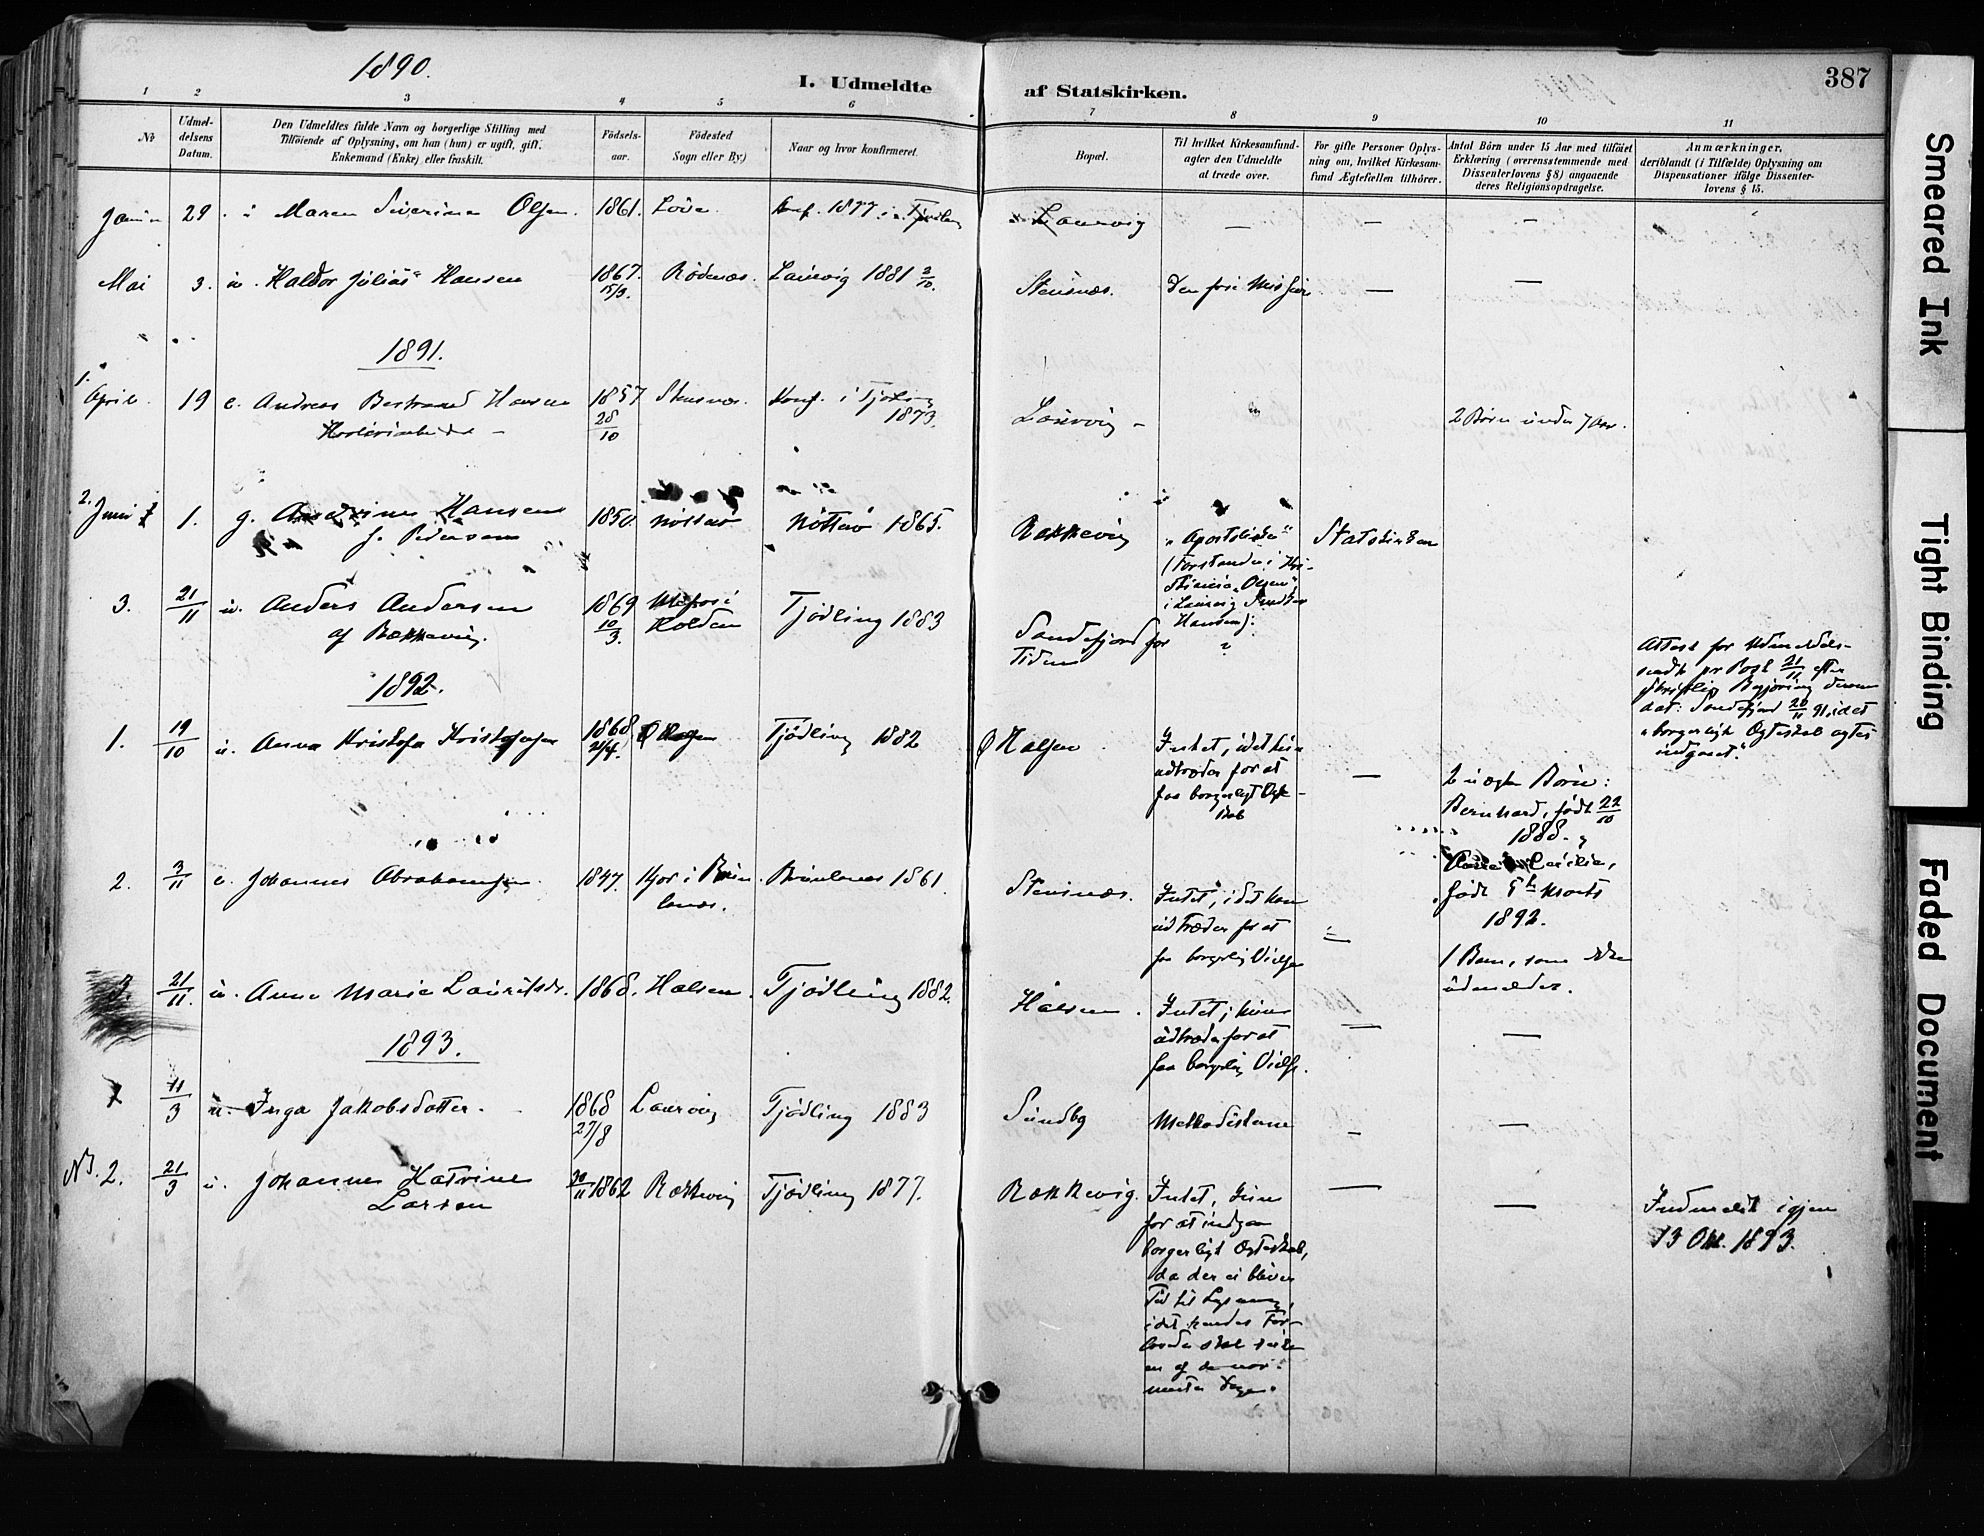 1890.
I. Udmeldte af Statskirken.
387
1 2 3 4 5 6 7 8 9 10 11
No
Udmeldelsens Datum.
Den Udmeldtes fulde Navn og borgerlige Stilling med
Tilføiende af Oplysning, om han (hun) er ugift, gift,
Enkemand (Enke) eller fraskilt.
Fødselsaar.
Fødested
Sogn eller By)
Naar og hvor konfirmeret.
Bopæl.
Til hvilket Kirkesamfund
agter den Udmeldte
at træde over.
For gifte Personer Oplysning om, hvilket Kirkesamfund Ægtefællen tilhører.
Antal Børn under 15 Aar med tilføiet
Erklæring (overensstemmende med
Dissenterlovens § 8) angaaende
deres Religionsopdragelse.
Anmærkninger,
deriblandt (i Tilfælde) Oplysning om
Dispensationer ifølge Dissenterlovens § 15.
29. u Maren Severine Olsen. 1861. Konf. 1877 i Tjødling Laurvig — — —
Mai 3. u. Haldor Julius Hansen 1867. 15/3. Rödenæs. Laurvig 1881 2/10. Stensnæs. Den fri Mission — —
1891.
1. April 19 e. Andreas Bertrand Hansen 1857 28/10 Stensnæs. Konf. i Tjødling 1873. Laurvig – 2 Børn under 7 Aar.
2. Juni 1. g. Hansen f. Pedersen 1850. Nötterö Nötterö 1865. Rækkevig "Apostoliske" (Forstander i Kristiania Olsen, i Laurvig Hansen). Statskirken
3. 21/11 u. Anders Andersen af Rækkevig. 1869 10/3. Holden Tjödling 1883 Sandefjord for Tiden ?
Attest for Udmeldelse
sendt pr Post 21/11 efter
skriftlig Begjæring
dat: Sandefjord 20/11 91, idet
borgerligt Ægteskab agtes
indgaaet.
1892.
1. 19/10 u. Anna Kristofa Kristofersen 1868 21/4. Tjödling 1882 Ø Halsen
Intet, idet hun
udtræder for at
faa borgerligt Ægteskab
—
2 uægte Børn:
Bernhard, født 22/10
1888.
Cecilie,
født 5te Marts
1892.
2. 3/11 e. Johannes Abrahamsen 1847. Kjør i Brunlanes. Brunlanes 1861. Stensnæs.
Intet, idet han
udtræder for at
faa borgerlig Vielse
—
1 Barn, som ikke
udmeldes.
3 21/11. u. Anne Marie Lauritsdr. 1868. Halsen. Tjödling 1882. Halsen.
Intet, hun
udtræder for at
faa borgerlig Vielse.
— —
1893.
1 11/3 u. Inga Jakobsdatter. 1868 27/8 Laurvig Tjödling 1883 Sundby Methodisterne — —
No. 2. 21/3 u. Johanne Katrine Larsen 30/11 1862 Rækkevig Tjödling 1877. Rækkevig.
Intet, kun
for at indgaa
borgerligt Ægteskab,
da der ei bliver
Tid til Lysning,
idet hendes Forlovede skal reise
en af de nærmeste Dage.
— —
Indmeldt igjen
13 Okt. 1893.
Smeared Ink
Tight Binding
Faded Document